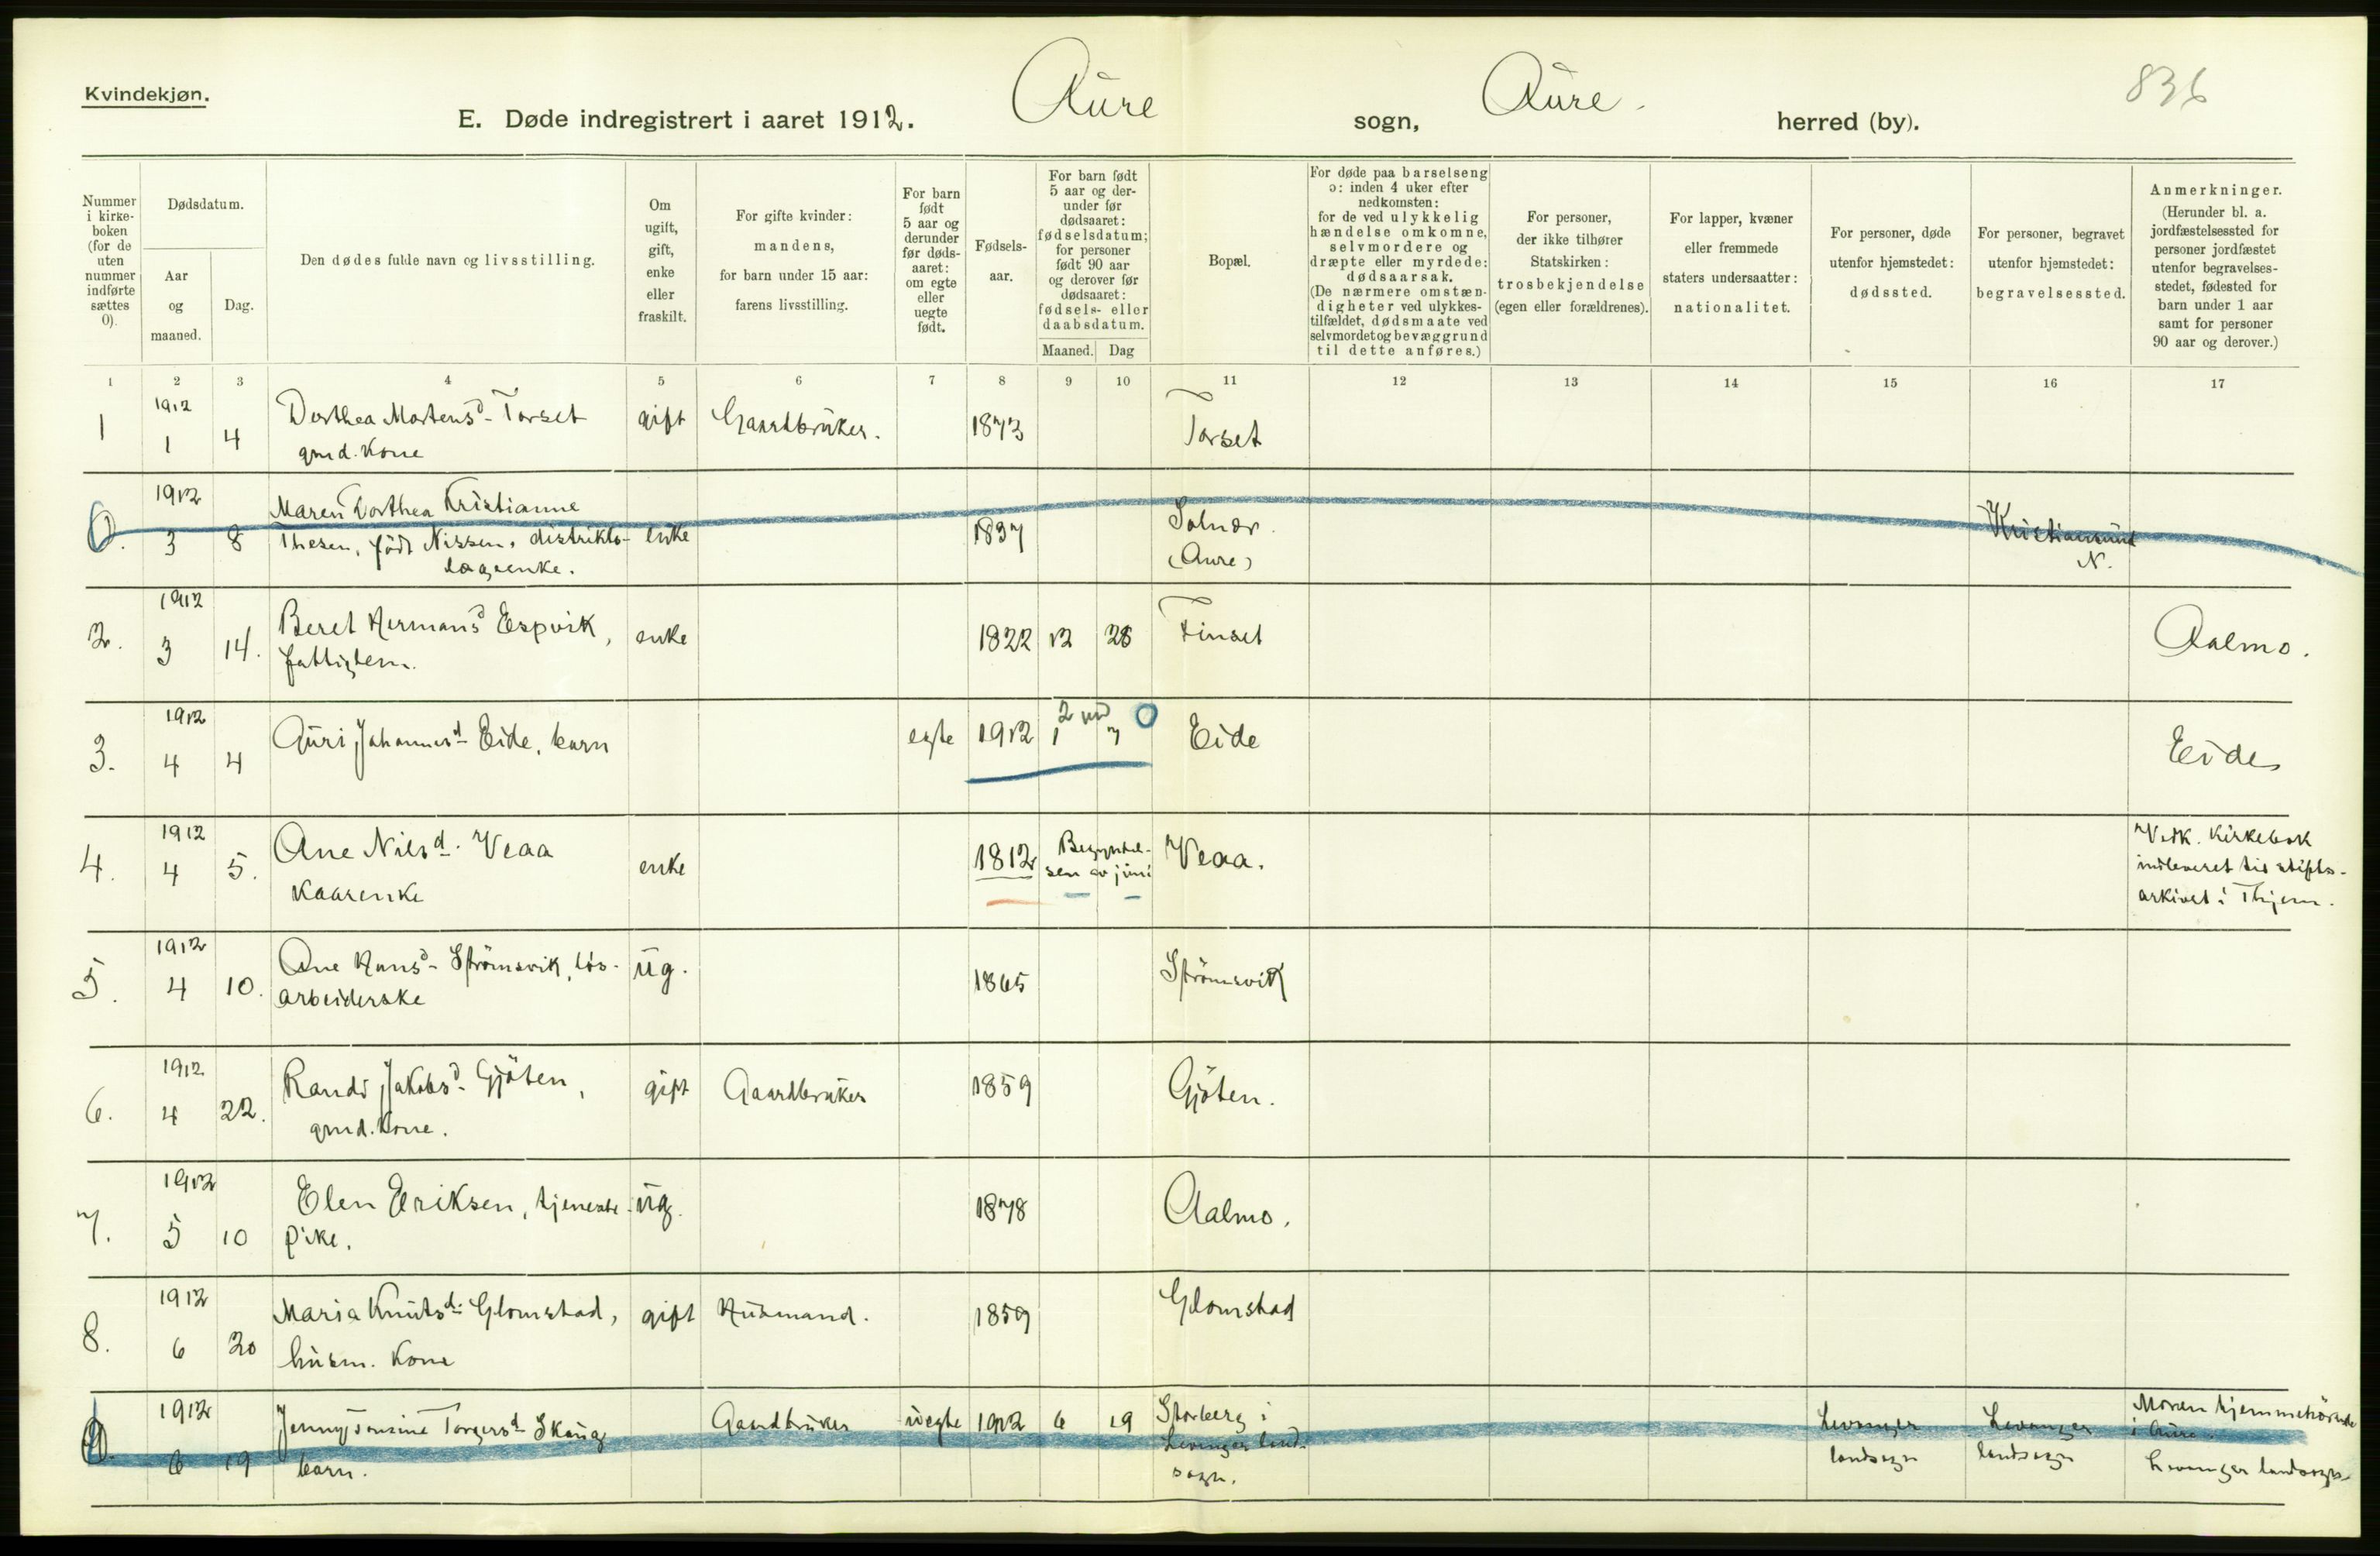 Kvindekjøn.
836
E. Døde indregistrert i aaret 1912. Aure sogn, Aure. herred (by).
Nummer i kirke-boken (for de uten nummer indførte sættes 0).
Dødsdatum.
Aar og maaned.
Dag.
Den dødes fulde navn og livsstilling.
Om ugift, gift, enke eller fraskilt.
For gifte kvinder: mandens, for barn under 15 aar: farens livsstilling.
For barn født 5 aar og derunder før døds-aaret: om egte eller uegte født.
Fødsels-aar.
For barn født 5 aar og der-under før dødsaaret: fødselsdatum; for personer født 90 aar og derover før dødsaaret: fødsels- eller daabsdatum.
Maaned.
Dag
Bopæl.
For døde paa barselseng ɔ: inden 4 uker efter nedkomsten: for de ved ulykkelig hændelse omkomne, selvmordere og dræpte eller myrdede: dødsaarsak. (De nærmere omstæn-digheter ved ulykkes-tilfældet, dødsmaate ved selvmordet og bevæggrund til dette anføres.)
For personer, der ikke tilhører Statskirken: trosbekjendelse (egen eller forældrenes).
For lapper, kvæner eller fremmede staters undersaatter: nationalitet.
For personer, døde utenfor hjemstedet: dødssted.
For personer, begravet utenfor hjemstedet: begravelsessted.
Anmerkninger. (Herunder bl. a. jordfæstelsessted for personer jordfæstet utenfor begravelses-stedet, fødested for barn under 1 aar samt for personer 90 aar og derover.)
1 2 3 4 5 6 7 8 9 10 11 12 13 14 15 16 17
1 1912 1 4 Dorthea Martensd- Torset gift Gaardbruker. 1873 Torset
gmd. Kone
0. 1912 3 8 Maren Dorthea Kristianne
Thesen, født Nissen, distrikts- enke 1837 Solnør. Kristiansund
lægeenke. (Aure) N.
2. 1912 3 14. Beret Hermansd Espvik, enke 1822 12 28 Finset Aalmo.
fattiglem.
3. 1912 4 4 Guri Johannesd- Eide, barn egte 1912 1 7 2 md 0 Eide Eide
4. 1912 4 5. Ane Nilsd. Veaa enke 1812 Begyndel- Veaa. Vedk. Kirkebok
sen av juni indleveret til stifts-
kaarenke arkivet i Thjem.
5. 1912 4 10. Ane Hansd- Strömsvik, løs- ug. 1865 Strömsvik
arbeiderske
6. 1912 4 22. Randi Jakobsd- Gjöten, gift Gaardbruker 1859 Gjöten.
gmd. Kone.
7. 1912 5 10 Elen Eriksen, tjeneste- ug. 1878 Aalmo.
pike.
8. 1912 6 20 Maria Knutsd: Glomstad, gift Husmand. 1859 Glomstad
husm. Kone
0. 1912 6 19 Torgersd Skaug Gaardbruker uegte 1912 6 19 Storberg i Levanger Levanger Moren hjemmehörende
Levanger land- i Aure.
barn. sogn. landsogn landsogn Levanger landsogn